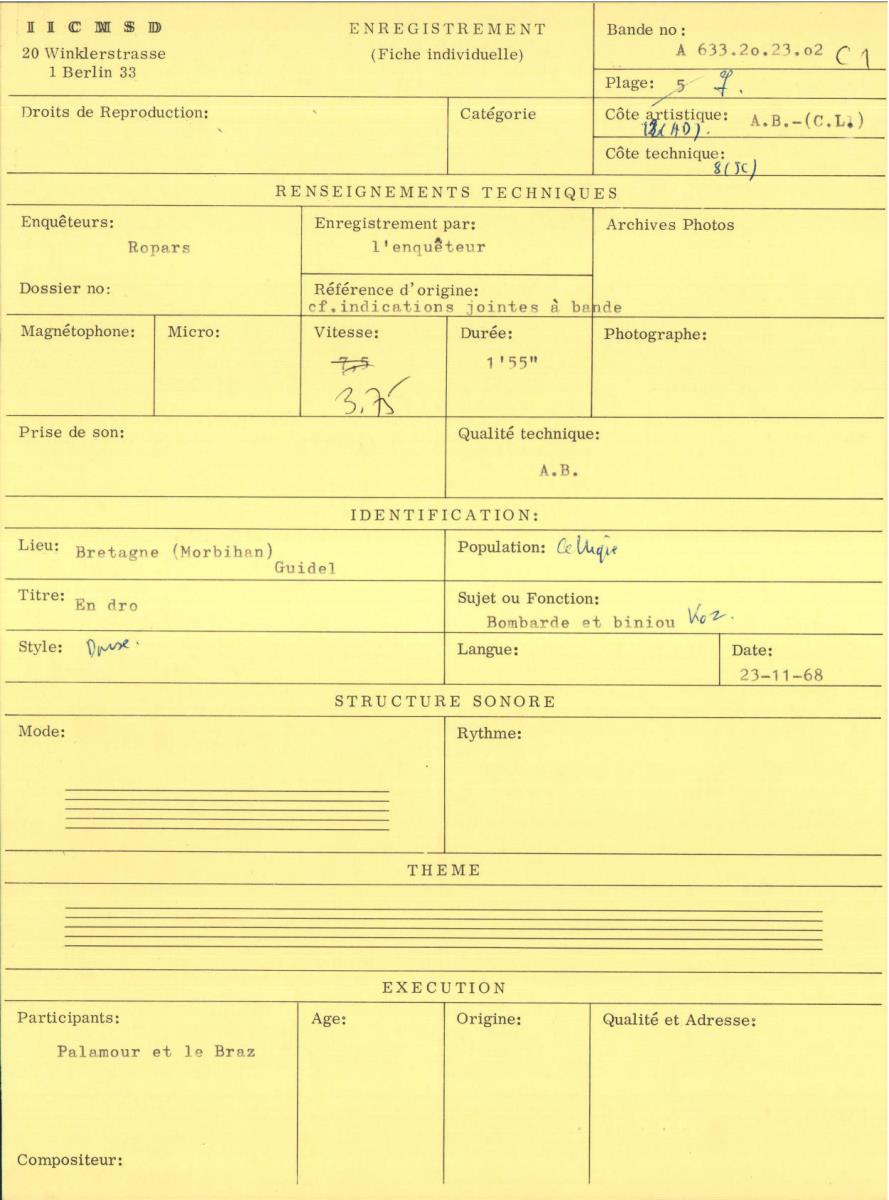 IICMSD
20 Winklerstrasse
1 Berlin 33
ENREGISTREMENT
(Fiche individuelle)
Bande no:
A 633.2o.23.o2 C1
Plage: 5 7.
Droits de Reproduction:
Catégorie
Côte artistique: A.B.-(C.L.)
(AD).
Côte technique:
8(JC)
RENSEIGNEMENTS TECHNIQUES
Enquêteurs:
Ropars
Enregistrement par:
l'enquêteur
Archives Photos
Dossier no:
Référence d'origine:
cf.indications jointes à bande
Magnétophone:
Micro:
Vitesse:
7,5
3,75
Durée:
1'55"
Photographe:
Prise de son:
Qualité technique:
A.B.
IDENTIFICATION:
Lieu: Bretagne (Morbihan)
Guidel
Population: Celtique
Titre: En dro
Sujet ou Fonction:
Bombarde et biniou Koz.
Style: Danse.
Langue:
Date:
23-11-68
STRUCTURE SONORE
Mode:
Rythme:
THEME
EXECUTION
Participants:
Palamour et le Braz
Age:
Origine:
Qualité et Adresse:
Compositeur: